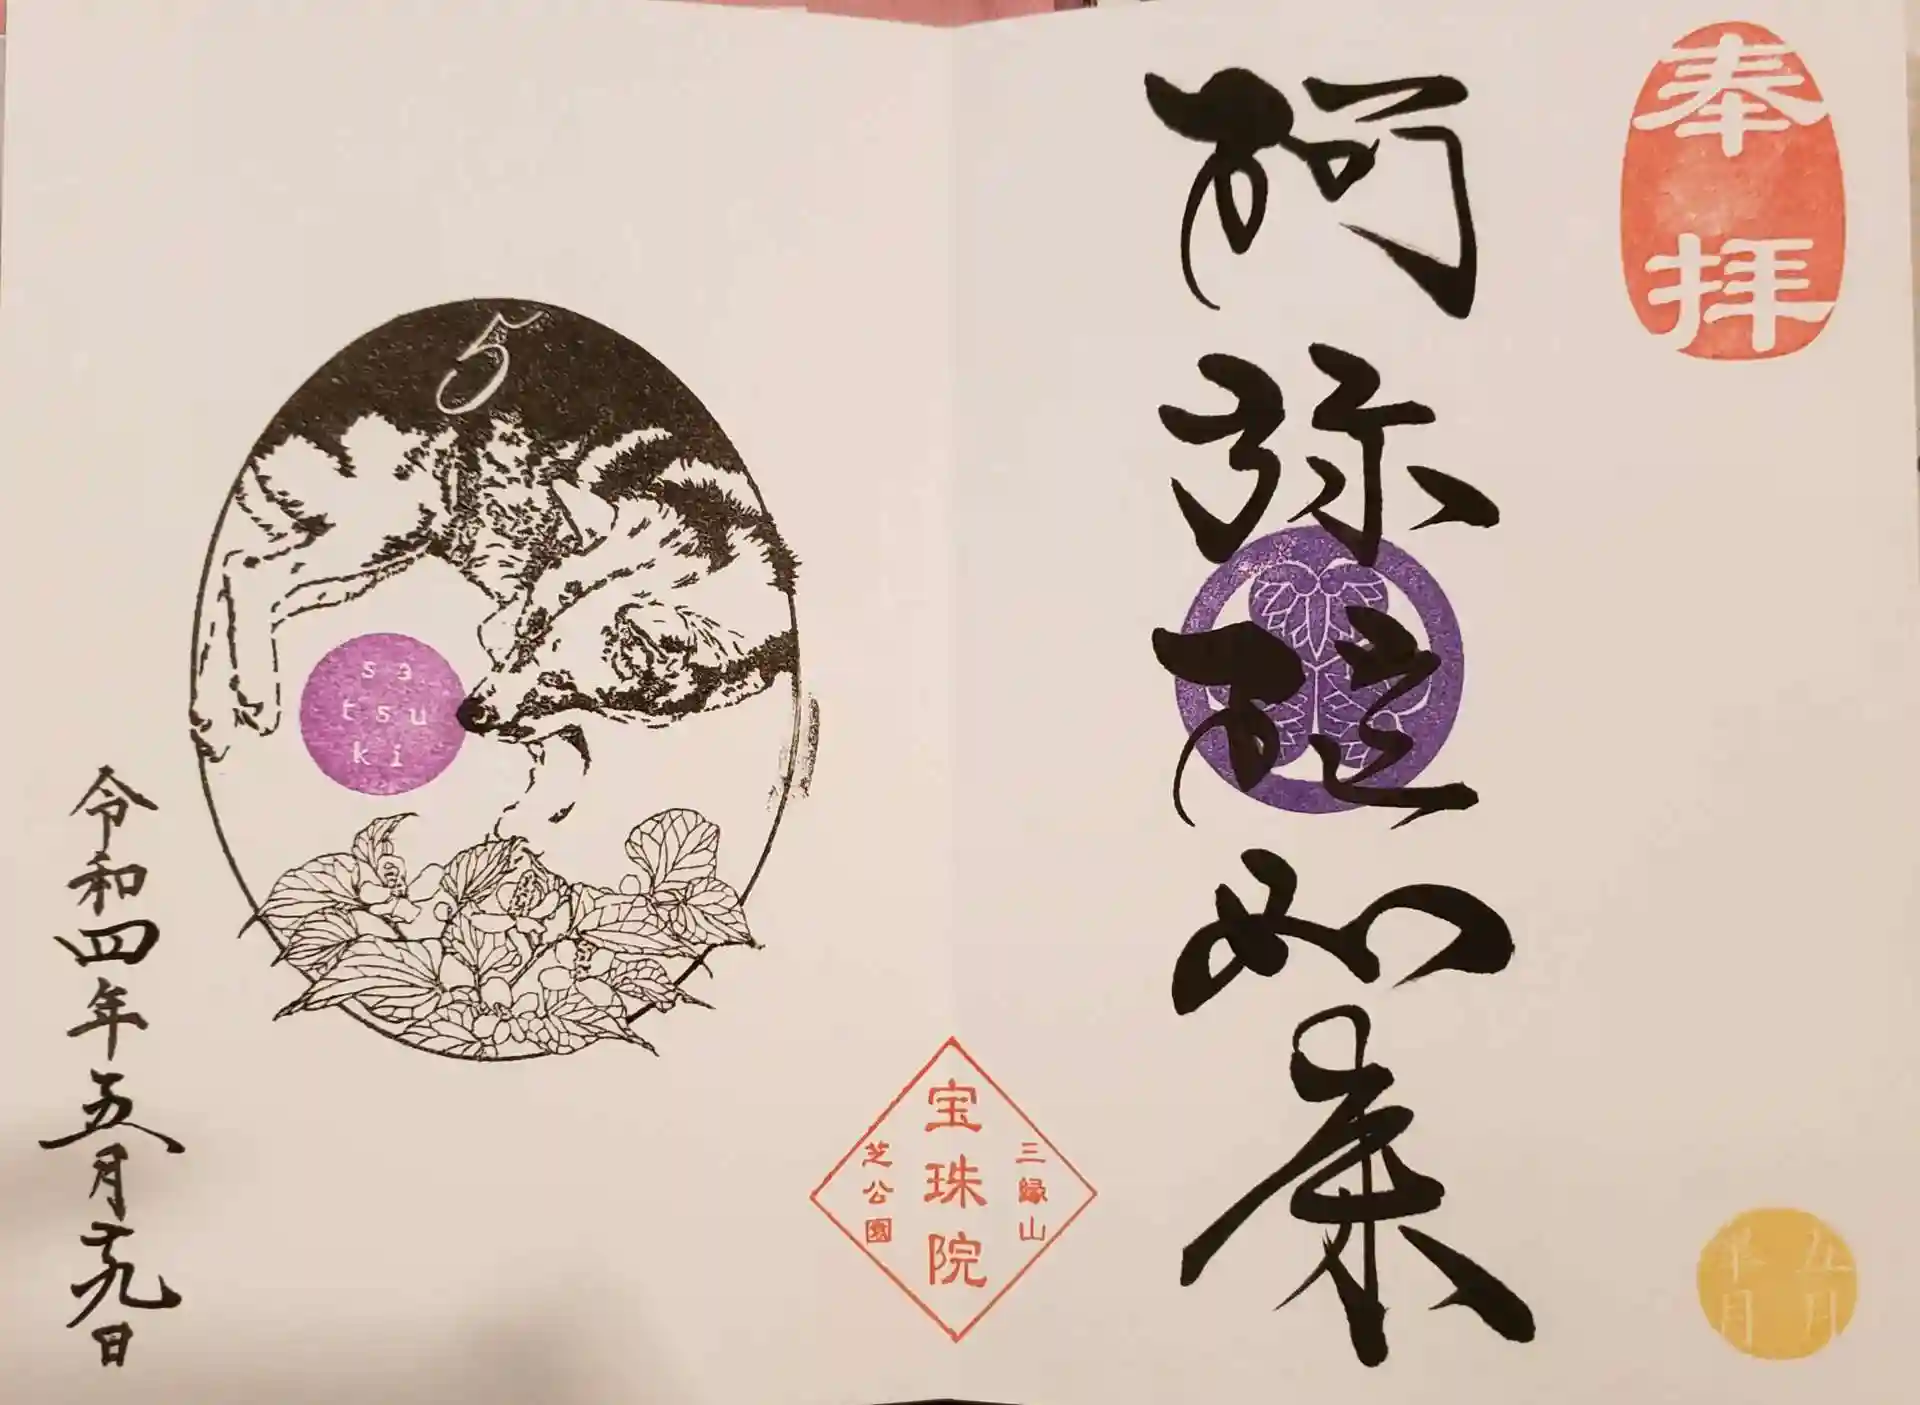 奉拝
阿弥陀如来
五月
三縁山
宝珠院
芝公園
5
sa
tsu
ki
令和四年五月十九日